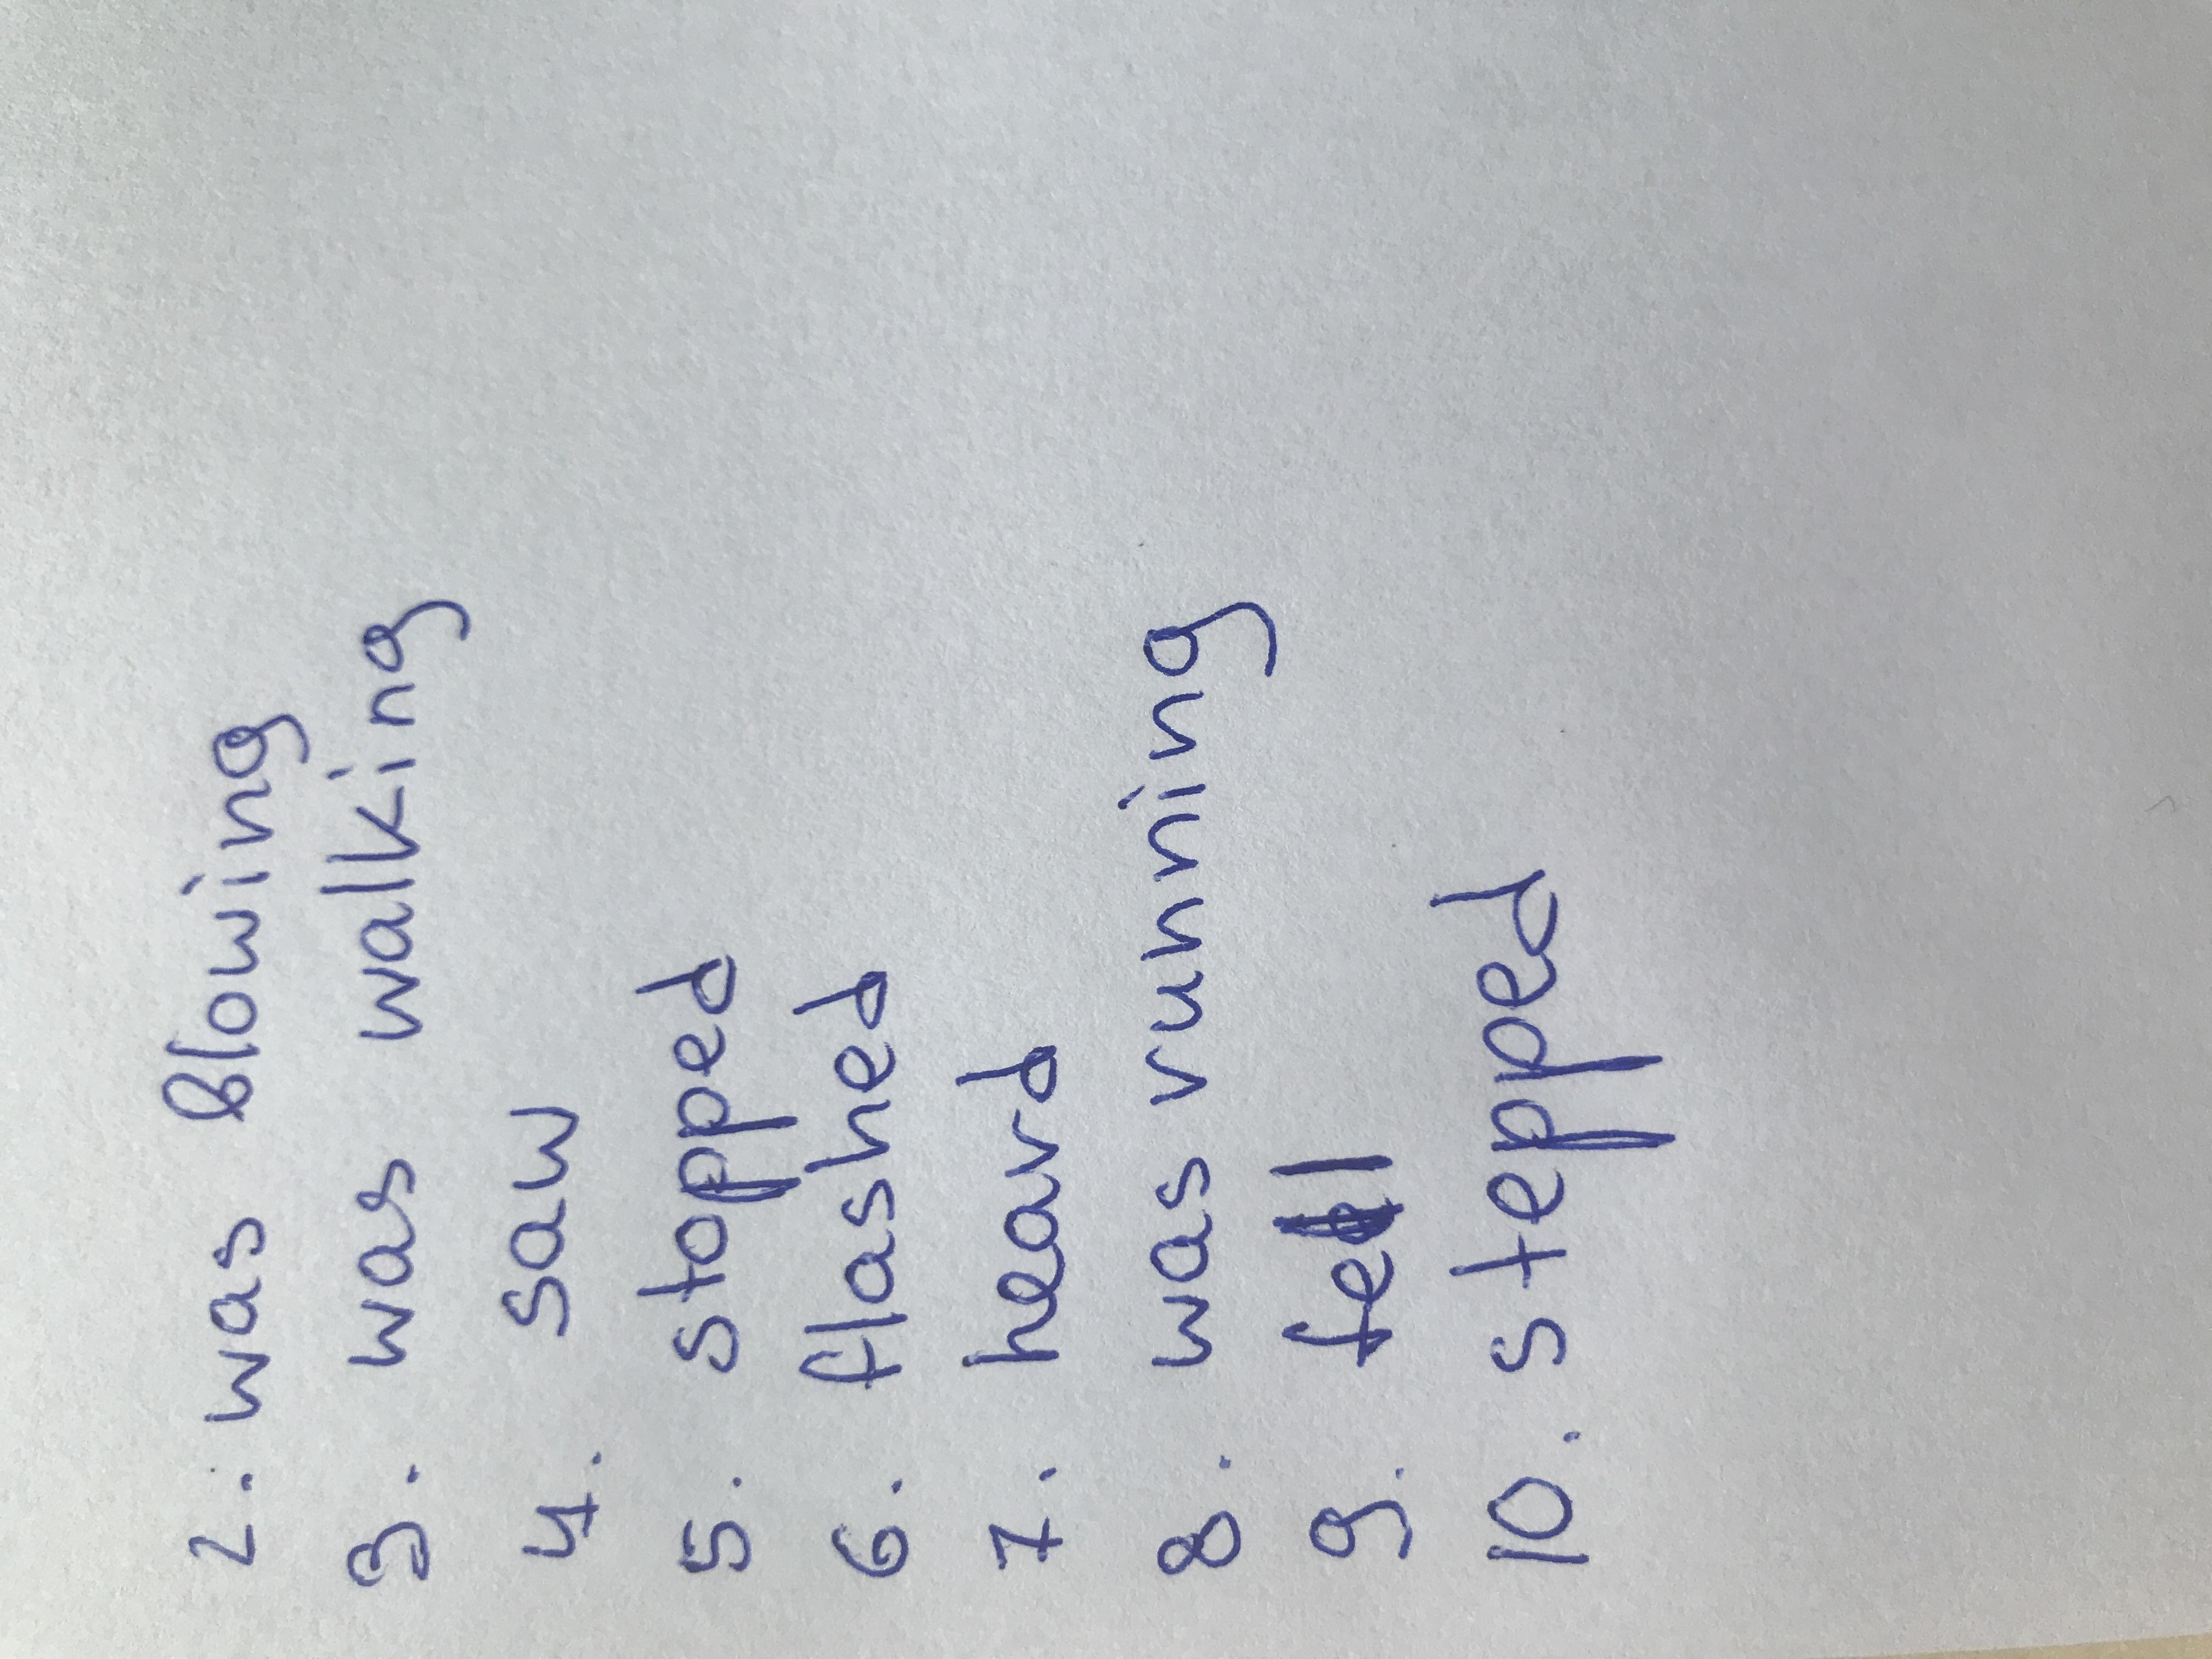 2. was blowing
3. was walking
4. saw
5. stopped
6. flashed
7. heard
8. was running
9. fell
10. stepped